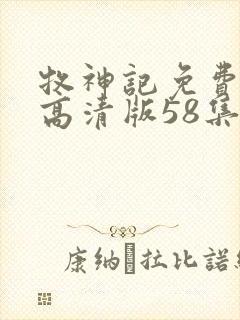 牧神記免費
高清版58集
康纳·拉比諾